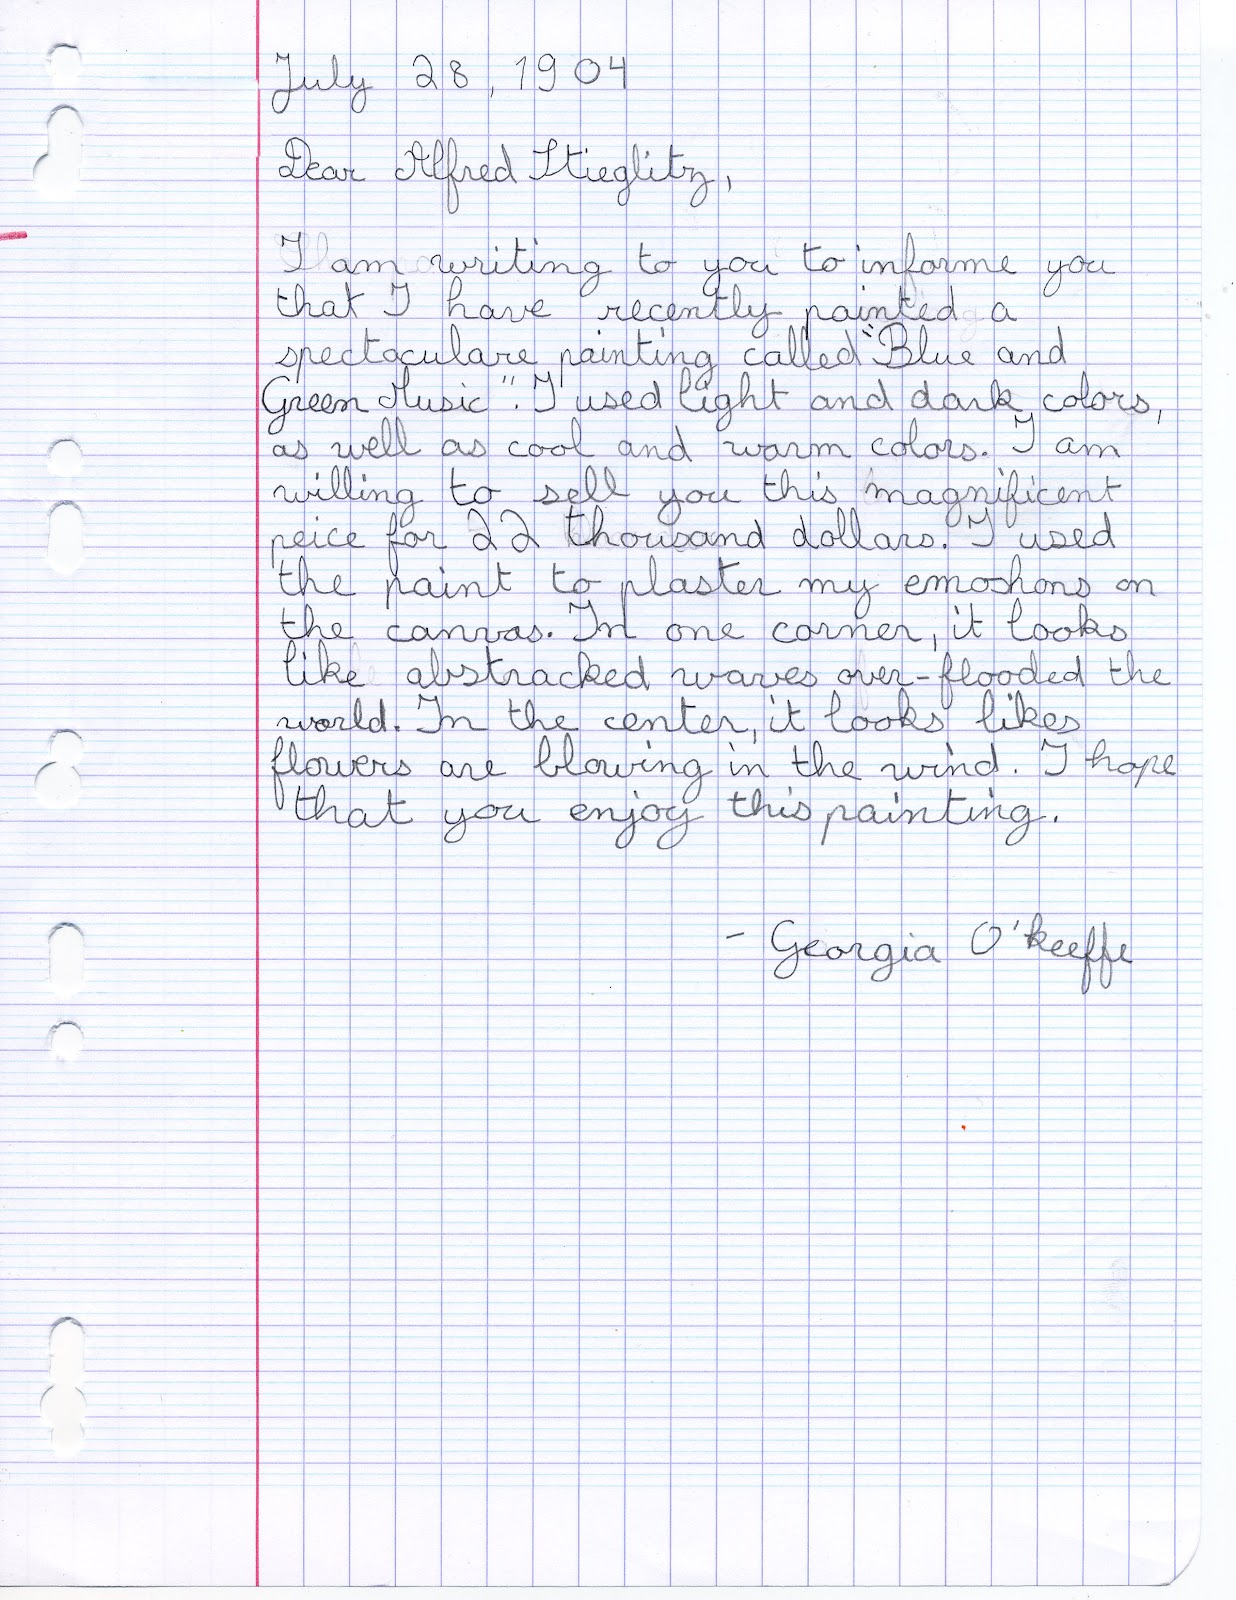 July 28, 1904
Dear Alfred Stieglitz,
I am writing to you to informe you
that I have recently painted a
spectaculare painting called "Blue and
Green Music". I used light and dark colors,
as well as cool and warm colors. I am
willing to sell you this magnificent
peice for 22 thousand dollars. I used
the paint to plaster my emotions on
the canvas. In one corner, it looks
like abstracked waves over-flooded the
world. In the center, it looks likes
flowers are blowing in the wind. I hope
that you enjoy this painting.
- Georgia O'keeffe